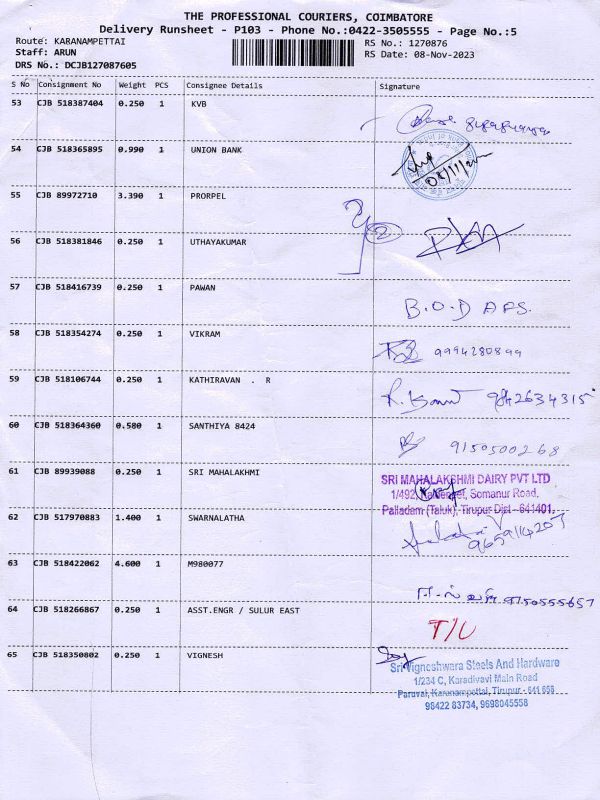 THE PROFESSIONAL COURIERS, COIMBATORE
Delivery Runsheet - P103 - Phone No.:0422-3505555 - Page No.:5
Route: KARANAMPETTAI
RS No.: 1270876
Staff: ARUN
RS Date: 08-Nov-2023
DRS No.: DCJB127087605
S No Consignment No Weight PCS Consignee Details Signature
53 CJB 518387404 0.250 1 KVB
54 CJB 518365895 0.990 1 UNION BANK
55 CJB 89972710 3.390 1 PRORPEL
56 CJB 518381846 0.250 1 UTHAYAKUMAR
57 CJB 518416739 0.250 1 PAWAN
B.O.D APS.
58 CJB 518354274 0.250 1 VIKRAM
9994280899
59 CJB 518106744 0.250 1 KATHIRAVAN . R
9842634315
60 CJB 518364360 0.580 1 SANTHIYA 8424
9150500268
61 CJB 89939088 0.250 1 SRI MAHALAKHMI
SRI MAHALAKSHMI DAIRY PVT LTD
1/492, Somanur Road,
Palladam (Taluk), Tirupur Dist - 641401.
62 CJB 517970883 1.400 1 SWARNALATHA
9659114207
63 CJB 518422062 4.600 1 M980077
9750555657
64 CJB 518266867 0.250 1 ASST.ENGR / SULUR EAST
T/U
65 CJB 518350802 0.250 1 VIGNESH
Sri Vigneshwara Steels And Hardware
1/234 C, Karadivavi Main Road
Paruvai, Karanampettai, Tirupur - 641 658
98422 83734, 9698045558